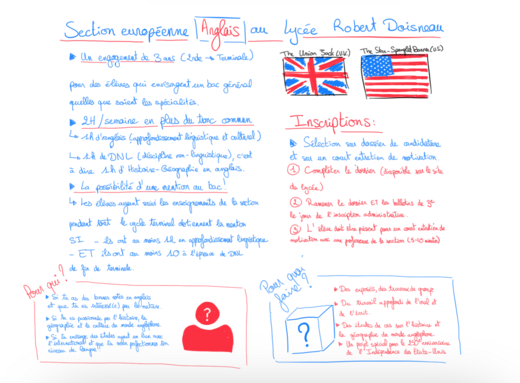 Section européenne Anglais au Lycée Robert Doisneau
▶ Un engagement de 3 ans (2nde → Terminale)
pour des élèves qui envisagent un bac général
quelles que soient les spécialités.
▶ 2H/semaine en plus du tronc commun
↳ 1h d'anglais (approfondissement linguistique et culturel)
↳ 1h de DNL (discipline non-linguistique), c'est
à dire 1h d'Histoire-Géographie en anglais.
▶ La possibilité d'une mention au bac!
↳ Les élèves ayant suivi les enseignements de la section
pendant tout le cycle terminal obtiennent la mention
SI - Ils ont au moins 12 en approfondissement linguistique
- ET ils ont au moins 10 à l'épreuve de DNL
de fin de terminale.
The Union Jack (U.K)
The Star-Spangled Banner (U.S)
Inscriptions:
▶ Sélection sur dossier de candidature
et sur un court entretien de motivation
① Compléter le dossier (disponible sur le site
du lycée)
② Ramener le dossier ET les bulletins de 3e
le jour de l'inscription administrative.
③ L'élève doit être présent pour un court entretien de
motivation avec une professeure de la section (5-10 minutes)
Pour qui?
▶ Si tu as des bonnes notes en anglais
et que tu es intéressé(e) par la matière.
▶ Si tu es passionné par l'histoire, la
géographie et la culture du monde anglophone.
▶ Si tu envisages des études ayant un lien avec
l'international et que tu veux perfectionner ton
niveau de langue!
?
Pour quoi faire?
?
▶ Des exposés, des travaux de groupe
▶ Du travail approfondi de l'oral et
de l'écrit
▶ Des études de cas sur l'histoire et
la géographie du monde anglophone.
▶ Un projet spécial pour le 250e anniversaire
de l'Indépendance des États-Unis